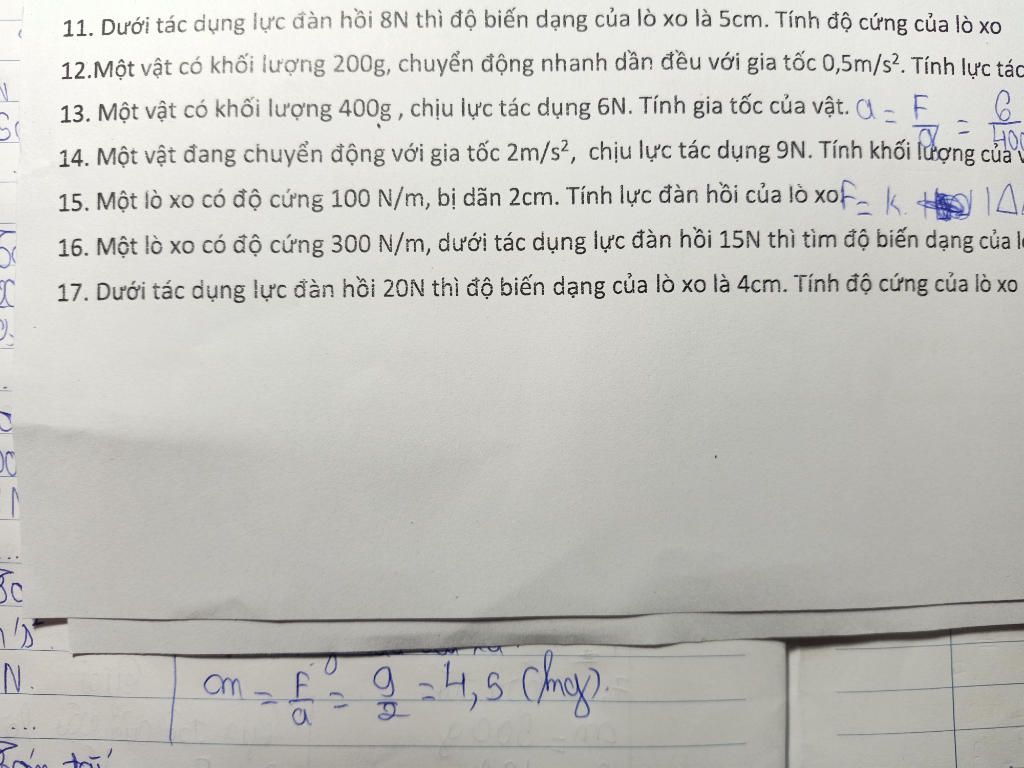 11. Dưới tác dụng lực đàn hồi 8N thì độ biến dạng của lò xo là 5cm. Tính độ cứng của lò xo
12.Một vật có khối lượng 200g, chuyển động nhanh dần đều với gia tốc 0,5m/s². Tính lực tác
13. Một vật có khối lượng 400g , chịu lực tác dụng 6N. Tính gia tốc của vật. a = F/a = 6/400
14. Một vật đang chuyển động với gia tốc 2m/s², chịu lực tác dụng 9N. Tính khối lượng của v
15. Một lò xo có độ cứng 100 N/m, bị dãn 2cm. Tính lực đàn hồi của lò xo F = k. |Δ
16. Một lò xo có độ cứng 300 N/m, dưới tác dụng lực đàn hồi 15N thì tìm độ biến dạng của l
17. Dưới tác dụng lực đàn hồi 20N thì độ biến dạng của lò xo là 4cm. Tính độ cứng của lò xo
N. m = F/a = 9/2 = 4,5 (kg).